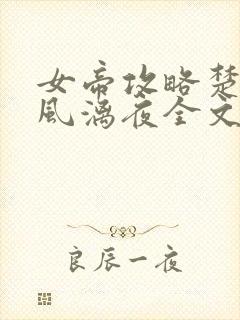 女帝攻略楚
风漓夜全文
良辰一夜